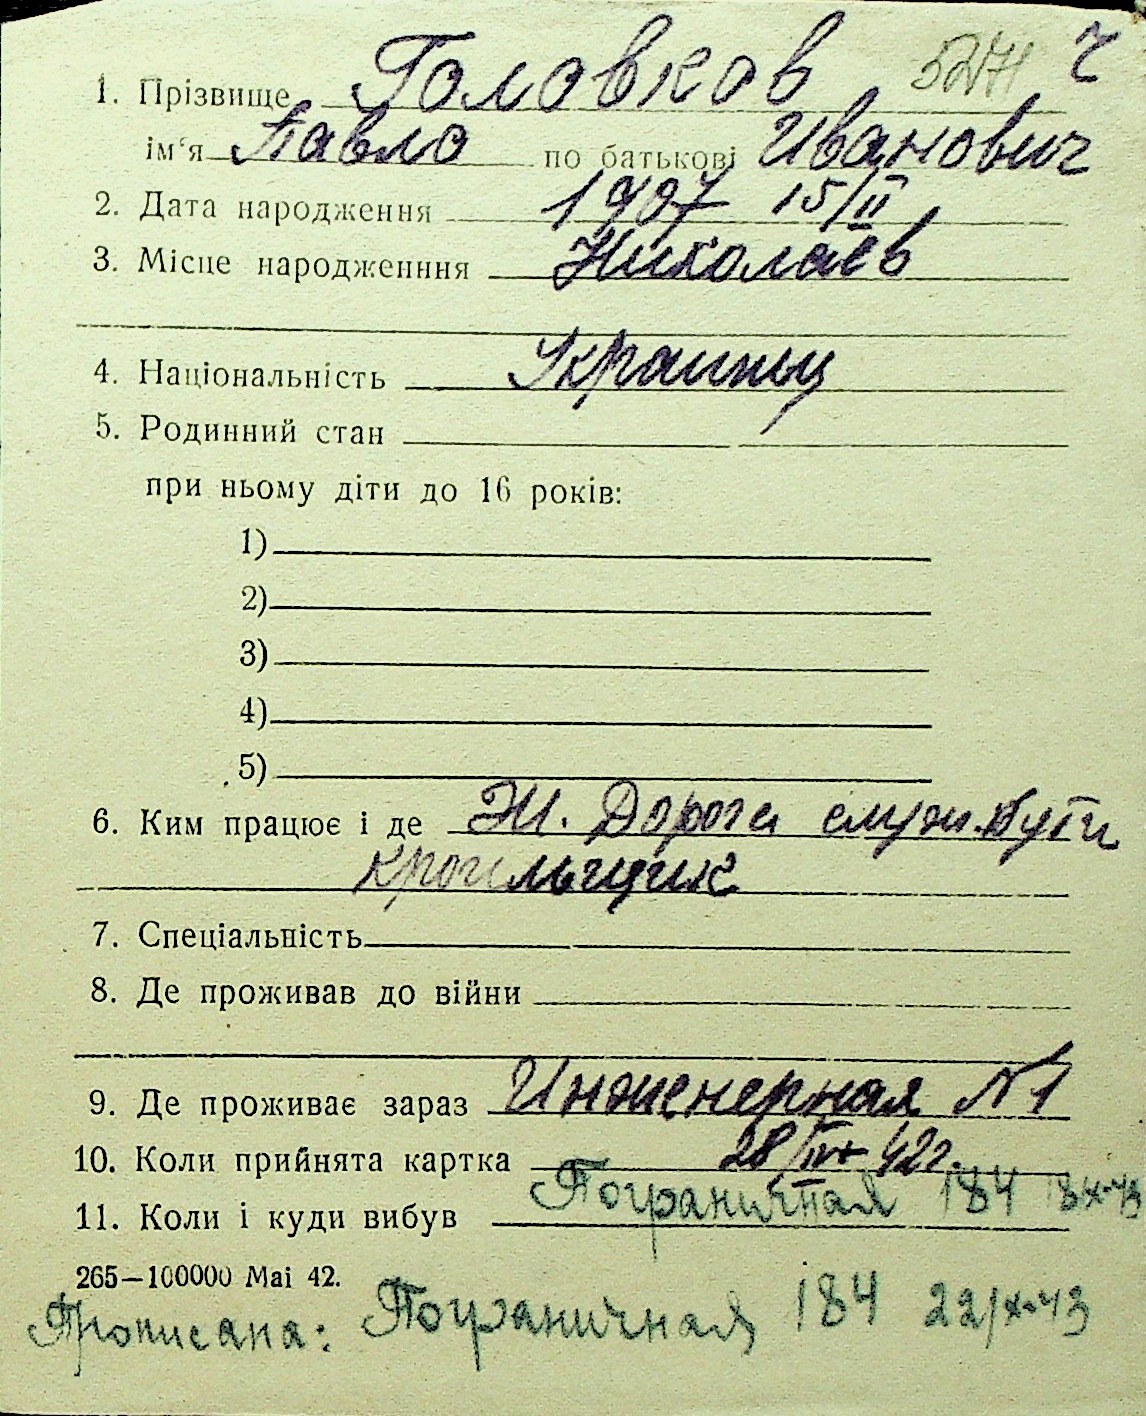 1. Прізвище Головков 5271 Ч
ім'я Павло по батькові Иванович
2. Дата народження 1907 15/II
3. Місце народженння Николаев
4. Національність Украинец
5. Родинний стан
при ньому діти до 16 років:
1)
2)
3)
4)
5)
6. Ким працює і де Ж. Дорога служ. Пути
7. Спеціальність
8. Де проживав до війни
9. Де проживає зараз Инженерная №1
10. Коли прийнята картка 28/IV 42г.
11. Коли і куди вибув Пограничная 184 18-X-43
265—100000 Mai 42.
Прописана: Пограничная 184 22/X-43